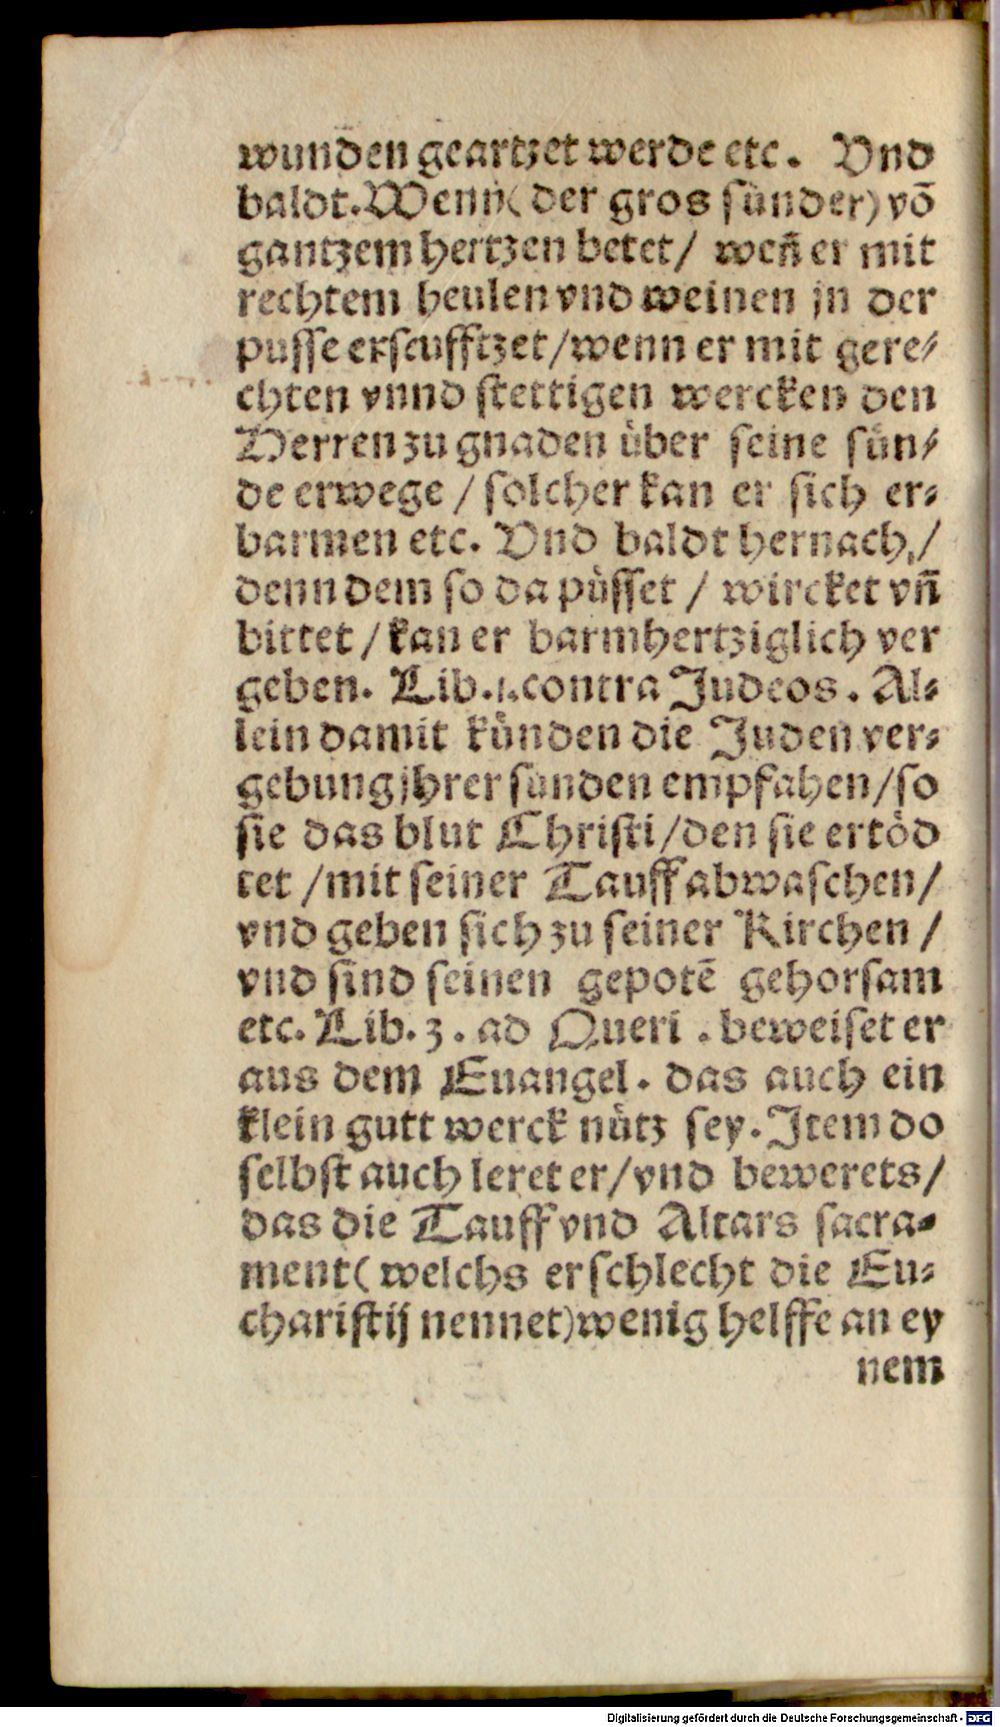 wunden geartzet werde etc. Vnd
baldt. Wenn (der gros sünder) võ
gantzem hertzen betet / weñ er mit
rechtem heulen vnd weinen jn der
pusse erseufftzet / wenn er mit gere⸗
chten vnnd stettigen wercken den
Herren zu gnaden über seine sün⸗
de erwege / solcher kan er sich er⸗
barmen etc. Vnd baldt hernach, /
denn dem so da püsset / wircket vñ
bittet / kan er barmhertziglich ver
geben. Lib. 1. contra Judeos. Al⸗
lein damit künden die Juden ver⸗
gebung jhrer sünden empfahen / so
sie das blut Christi / den sie ertöd
tet / mit seiner Tauff abwaschen /
vnd geben sich zu seiner Kirchen /
vnd sind seinen gepotẽ gehorsam
etc. Lib. 3. ad Queri. beweiset er
aus dem Euangel. das auch ein
klein gutt werck nütz sey. Item do
selbst auch leret er / vnd bewerets /
das die Tauff vnd Altars sacra⸗
ment (welchs er schlecht die Eu⸗
charistij nennet) wenig helffe an ey
nem
Digitalisierung gefördert durch die Deutsche Forschungsgemeinschaft - DFG